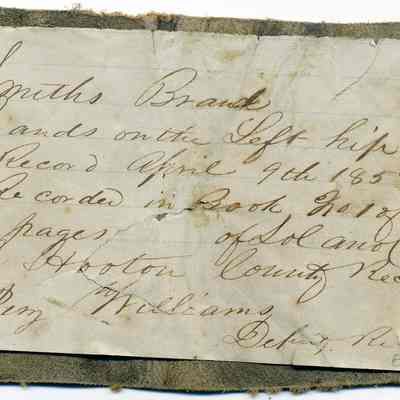 Smiths Brand
ands on the Left hip
Record April 9th 185
Recorded in Book No 1 of
pages of Solano
Hooton County Rec
Williams
Deputy Re